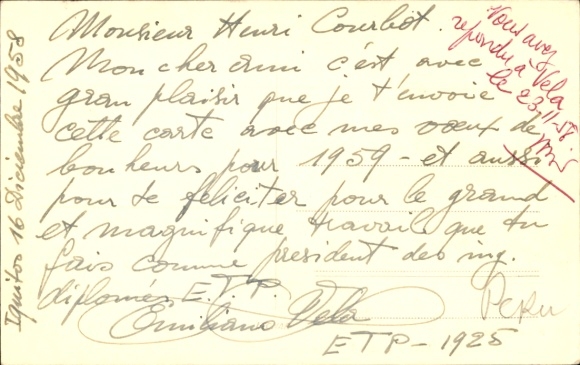 Monsieur Henri Courbot.
Mon cher ami c'est avec
gran plaisir que je t'envoie
cette carte avec mes voeux de
bonheurs pour 1959 - et aussi
pour te feliciter pour le grand
et magnifique travail que tu
fais comme president des ing.
diplomés E.T.P.
Emiliano Vela
ETP - 1925
PERU
Iquitos 16 Diciembre 1958
Vous avez
repondu a Vela
le 23-11-58.